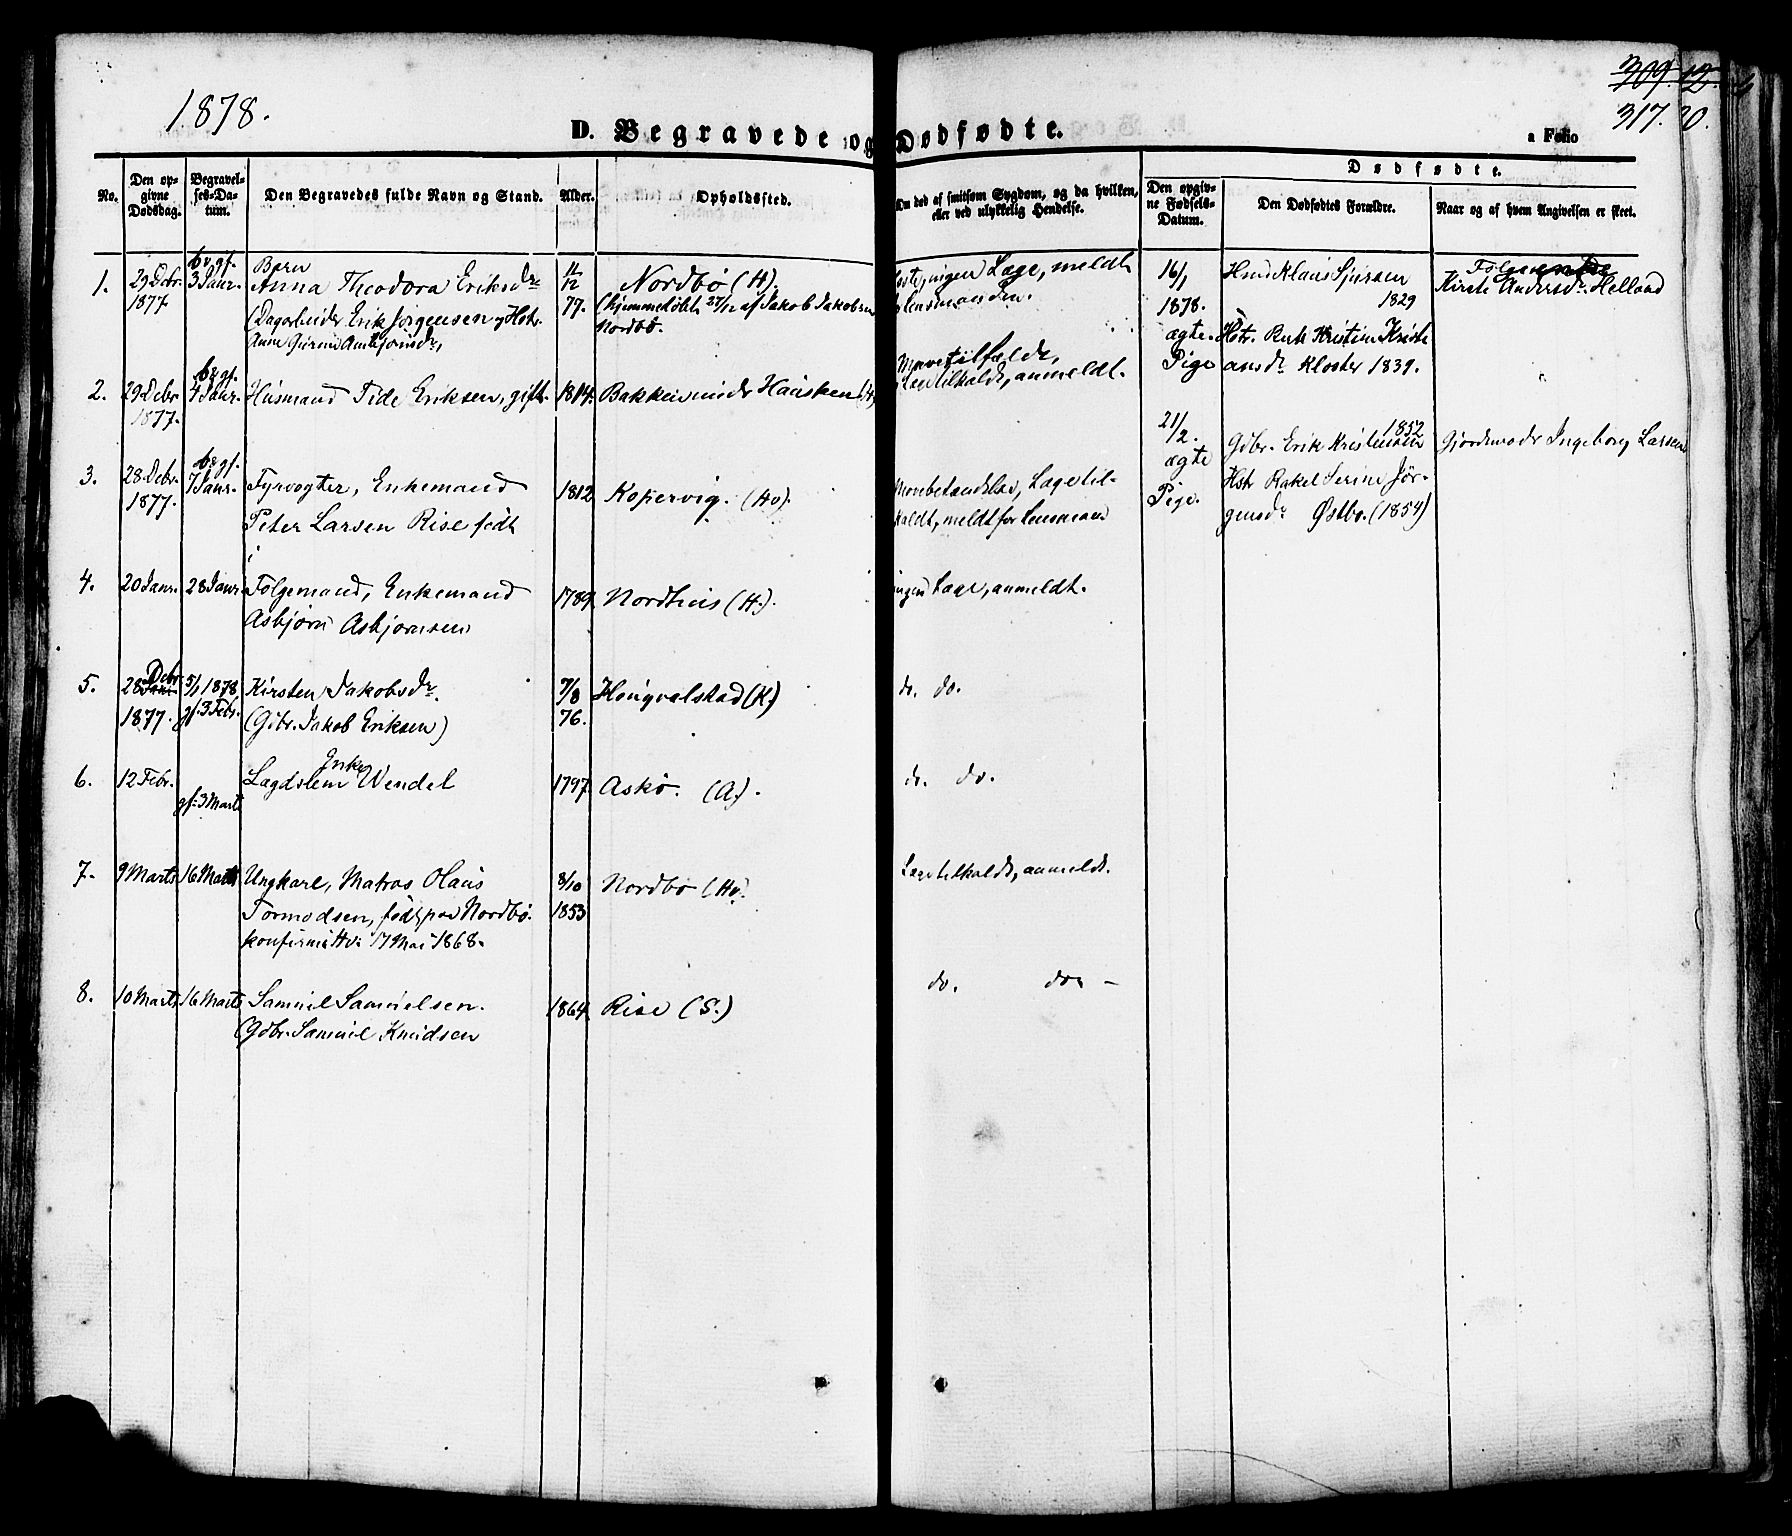 1878.
309. 12.
317. 20.
D. Begravede og Dødfødte.
a Folio
No.
Den opgivne Dødsdag.
Begravelses-Datum.
Den Begravedes fulde Navn og Stand.
Alder.
Opholdssted.
Om død af smitsom Sygdom, og da hvilken, eller ved ulykkelig Hendelse.
Dødfødte.
Den opgivne Fødsels-Datum.
Den Dødfødtes Forældre.
Naar og af hvem Angivelsen er skeet.
1. 29 Debr. 1877 begr. 3 Janr. Barn
Anna Theodora Eriksdr
(Dagarbeider Erik Jørgensen og Hstr.
Anne
77. Nordbø (H).
(hjemmedøbt 27/12 af Jakob Jakobsen
Nordbø.
Hoste, ingen Læge, meldt
Lensmanden.
2. 29 Debr 1877. begr. 4 Janr. Husmand Tide Eriksen, gift. 1814. Bakken under Hausken (H)
Mavetilfælde,
Læge tilkaldt, anmeldt.
3. 28 Debr. 1877. begr. 7 Janr. Fyrvogter, Enkemand 1812 Kopervig. (Hv).
Peter Larsen Rise født
i
Lægetil-
kaldt, meldt for Lensmand
4. 20 Janr. 28 Janr. Følgemand, Enkemand 1789. Nordhus (H.).
Asbjørn Asbjørnsen
ingen Læge, anmeldt.
5. 28 Debr 1877. 5/1 1878, gf. 3 Febr. Kirsten Jakobsdr. 7/8 76. Hougvalstad (H)
(Gbr. Jakob Eriksen)
do. do.
6. 12 Febr. gf. 3 Marts Enke
Lægdslem Wendel 1797 Askø. (A.).
do. do.
7. 9 Marts 16 Marts Ungkarl, Matros Hans 8/10 1853 Nordbø (Hv.
Tormodsen, født paa Nordbø.
konfirm. Hv. 17 Mai 1868.
Læge tilkaldt, anmeldt.
8. 10 Marts 16 Marts Samuel Samuelsen. 1864. Rise (S.)
(Gdbr. Samuel Knudsen
do. do. -
16/1 1878. ægte Pige
Hmd Klaus Sjursen
1829
Hstr. Kristine Kristi-
ansdr Kloster 1839.
Kirsti Andersdr. Helland
21/2. ægte Pige.
1852
Gdbr. Erik Kristensen
Hstr Rakel Serine Jør-
gensdr Østbø. (1854)
Gjordemoder Ingeborg Larsen